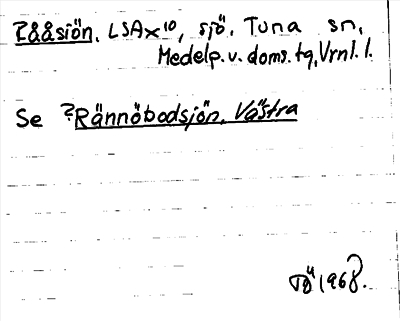 Rååsiön. LSA x 10, sjö. Tuna sn,
Medelp. v. doms. tg, Vrnl. l.
Se ?Rännöbodsjön, Västra
1968.